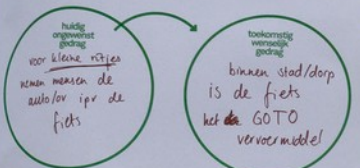 huidig
ongewenst
gedrag
voor kleine ritjes
nemen mensen de
auto/ov ipv de
fiets
toekomstig
wenselijk
gedrag
binnen stad/dorp
is de fiets
het GOTO
vervoermiddel